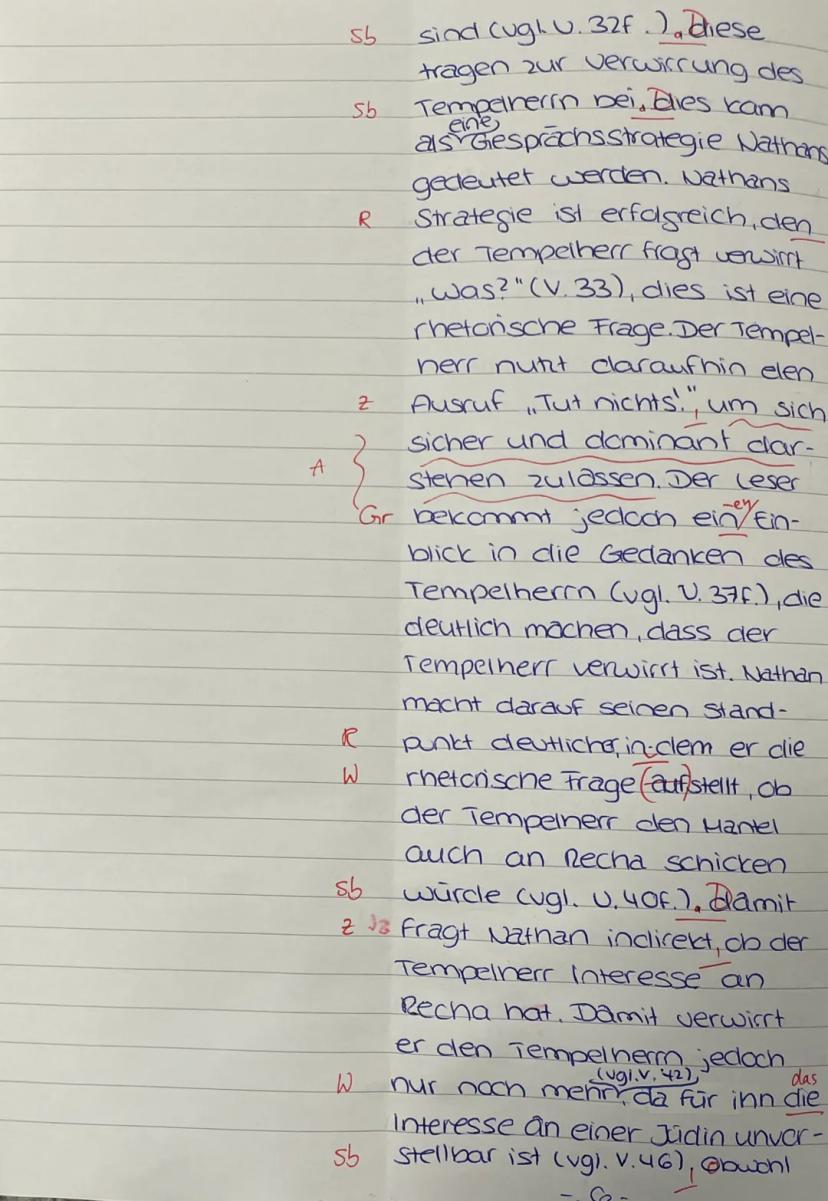 Sb sind (vgl. V. 32f.). Diese
tragen zur Verwirrung des
Sb Tempelherrn bei. Dies kann
eine
als Gesprächsstrategie Nathans
gedeutet werden. Nathans
R Strategie ist erfolgreich, den
der Tempelherr fragt verwirrt
„Was?" (V. 33), dies ist eine
rhetorische Frage. Der Tempel-
herr nutzt daraufhin den
Z Ausruf „Tut nichts!", um sich
sicher und dominant dar-
A stehen zulassen. Der Leser
Gr bekommt jedoch ein -en Ein-
blick in die Gedanken des
Tempelherrn (vgl. V. 37f.), die
deutlich machen, dass der
Tempelherr verwirrt ist. Nathan
macht darauf seinen Stand-
R punkt deutlicher, in dem er die
W rhetorische Frage (auf)stellt, ob
der Tempelherr den Mantel
auch an Recha schicken
Sb würde (vgl. V. 40f.). Damit
Z fragt Nathan indirekt, ob der
Tempelherr Interesse an
Recha hat. Damit verwirrt
er den Tempelherrn jedoch
(vgl. V. 42), das
W nur noch mehr, da für ihn die
Interesse an einer Jüdin unvor-
Sb stellbar ist (vgl. V. 46), obwohl